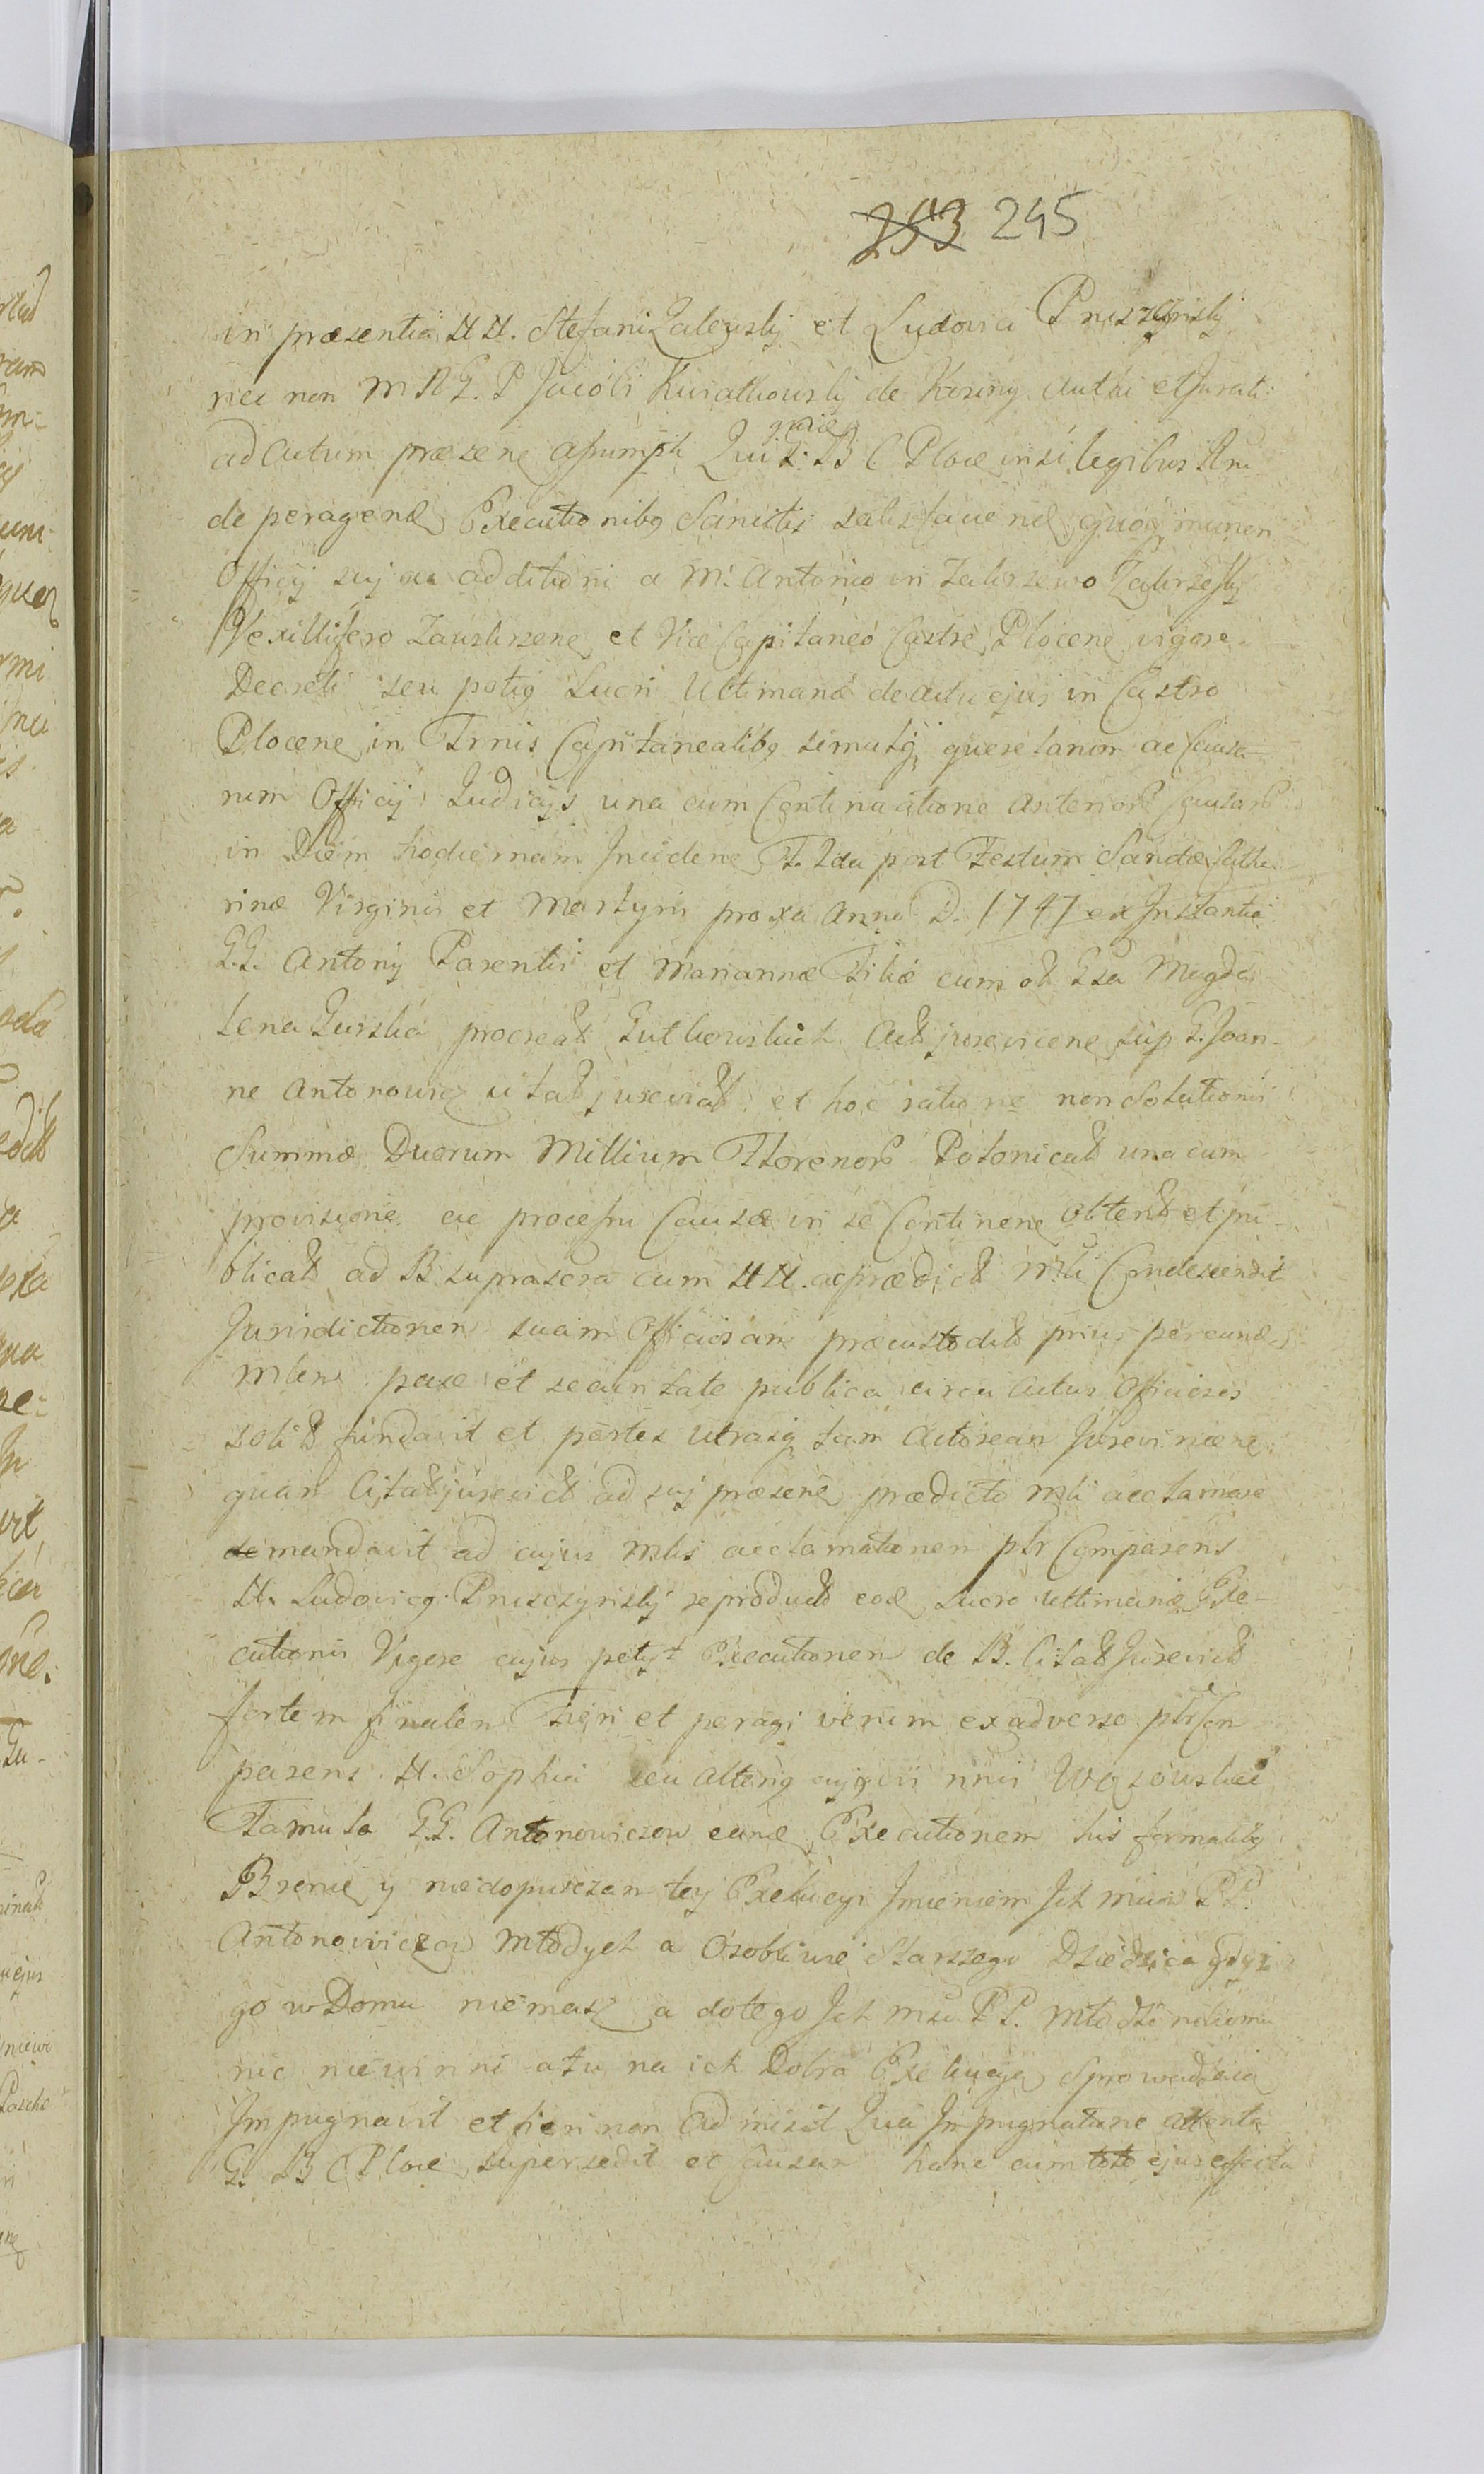 253 245
in præsentia H H. Stefani Zalewskj et Ludovici Pruszynskj
nec non M R G. P Jacobi Kwiatkowskj de Kosiny Auth. et Jurati
ad Actum præsenē assumpti Qui G. B C Ploce legibus Rni
de peragend Executionibq Sancitis satisfaciend quoq muneri
Officij suj ac additioni a M. Antonio in Zaborzewo Zaborzeskj
Vexillifero Zawskrzenē et Vice Capitaneo Castrē Plocenē vigore
Decreti seu potiq Lucri Ultimariæ de actu ejus in Castro
Plocenē in Trnis Capitanealibq simulq querelarum ac Causa-
rum Officij Judicijs una cum Continuatione anterior Causar
in Diem hodiernam Inciden F. 2da post Festum Sanctæ Catha
rinæ Virginis et Martyris proxa Anno D. 1747 ex Instantia
G.G. Antonij Parentis et Mariannæ Filiæ cum ob Gsa Magda
lena Gurska procreat Gutkowskich Act jurevicenē sup G. Joan-
ne Antonowicz citat jurevict et hoc ratione non Solutionis
Summæ Duorum Millium Florenor Polonical una cum
provisione ac processu Causæ in se Continenē obtent et pu-
blicat ad B. suprascra cum HH. ac prædict Mli Condescendit
Jurisdictionem suam Officiosam præcustodit prius per eund
Mlem pace et securitate publica circa Actus Officiosos
solit fundavit et partes utrasq tam Actoream Jurevincenē
quam Citat jurevict ad suj præsenē prædicto Mli acclamare
demandavit ad cujus Mlis acclamationem pltr Comparens
H. Ludovicq Pruszynskj reproduct eod Lucro ultimariæ Exe-
cutionis Vigore cujus petyt Executionem de B. Citat Jurevict
fortem finalem Fieri et peragi verum ex adverso pltr Com
parens H. Sophia seu alteriq cujusvis nnis Wąsowska
Famula G.G. Antonowiczow eand Executionem his formalibq
Bronię y niedopuszczam tey Exekucyi Jmieniem Jch mciow P P.
Antonowiczow Młodych a Osobliwie Starszego Dziedzica gdyz
go w Domu niemasz a dotego Jch mść PP. Młodzi nikomu
nic niewinni a tu na ich Dobra Exekucyą Sprowadzaią
Impugnavit et fieri non admisit Qua Impugnatione attenta
G. B C Ploce supersedit et Causam hanc cum toto ejus effectu